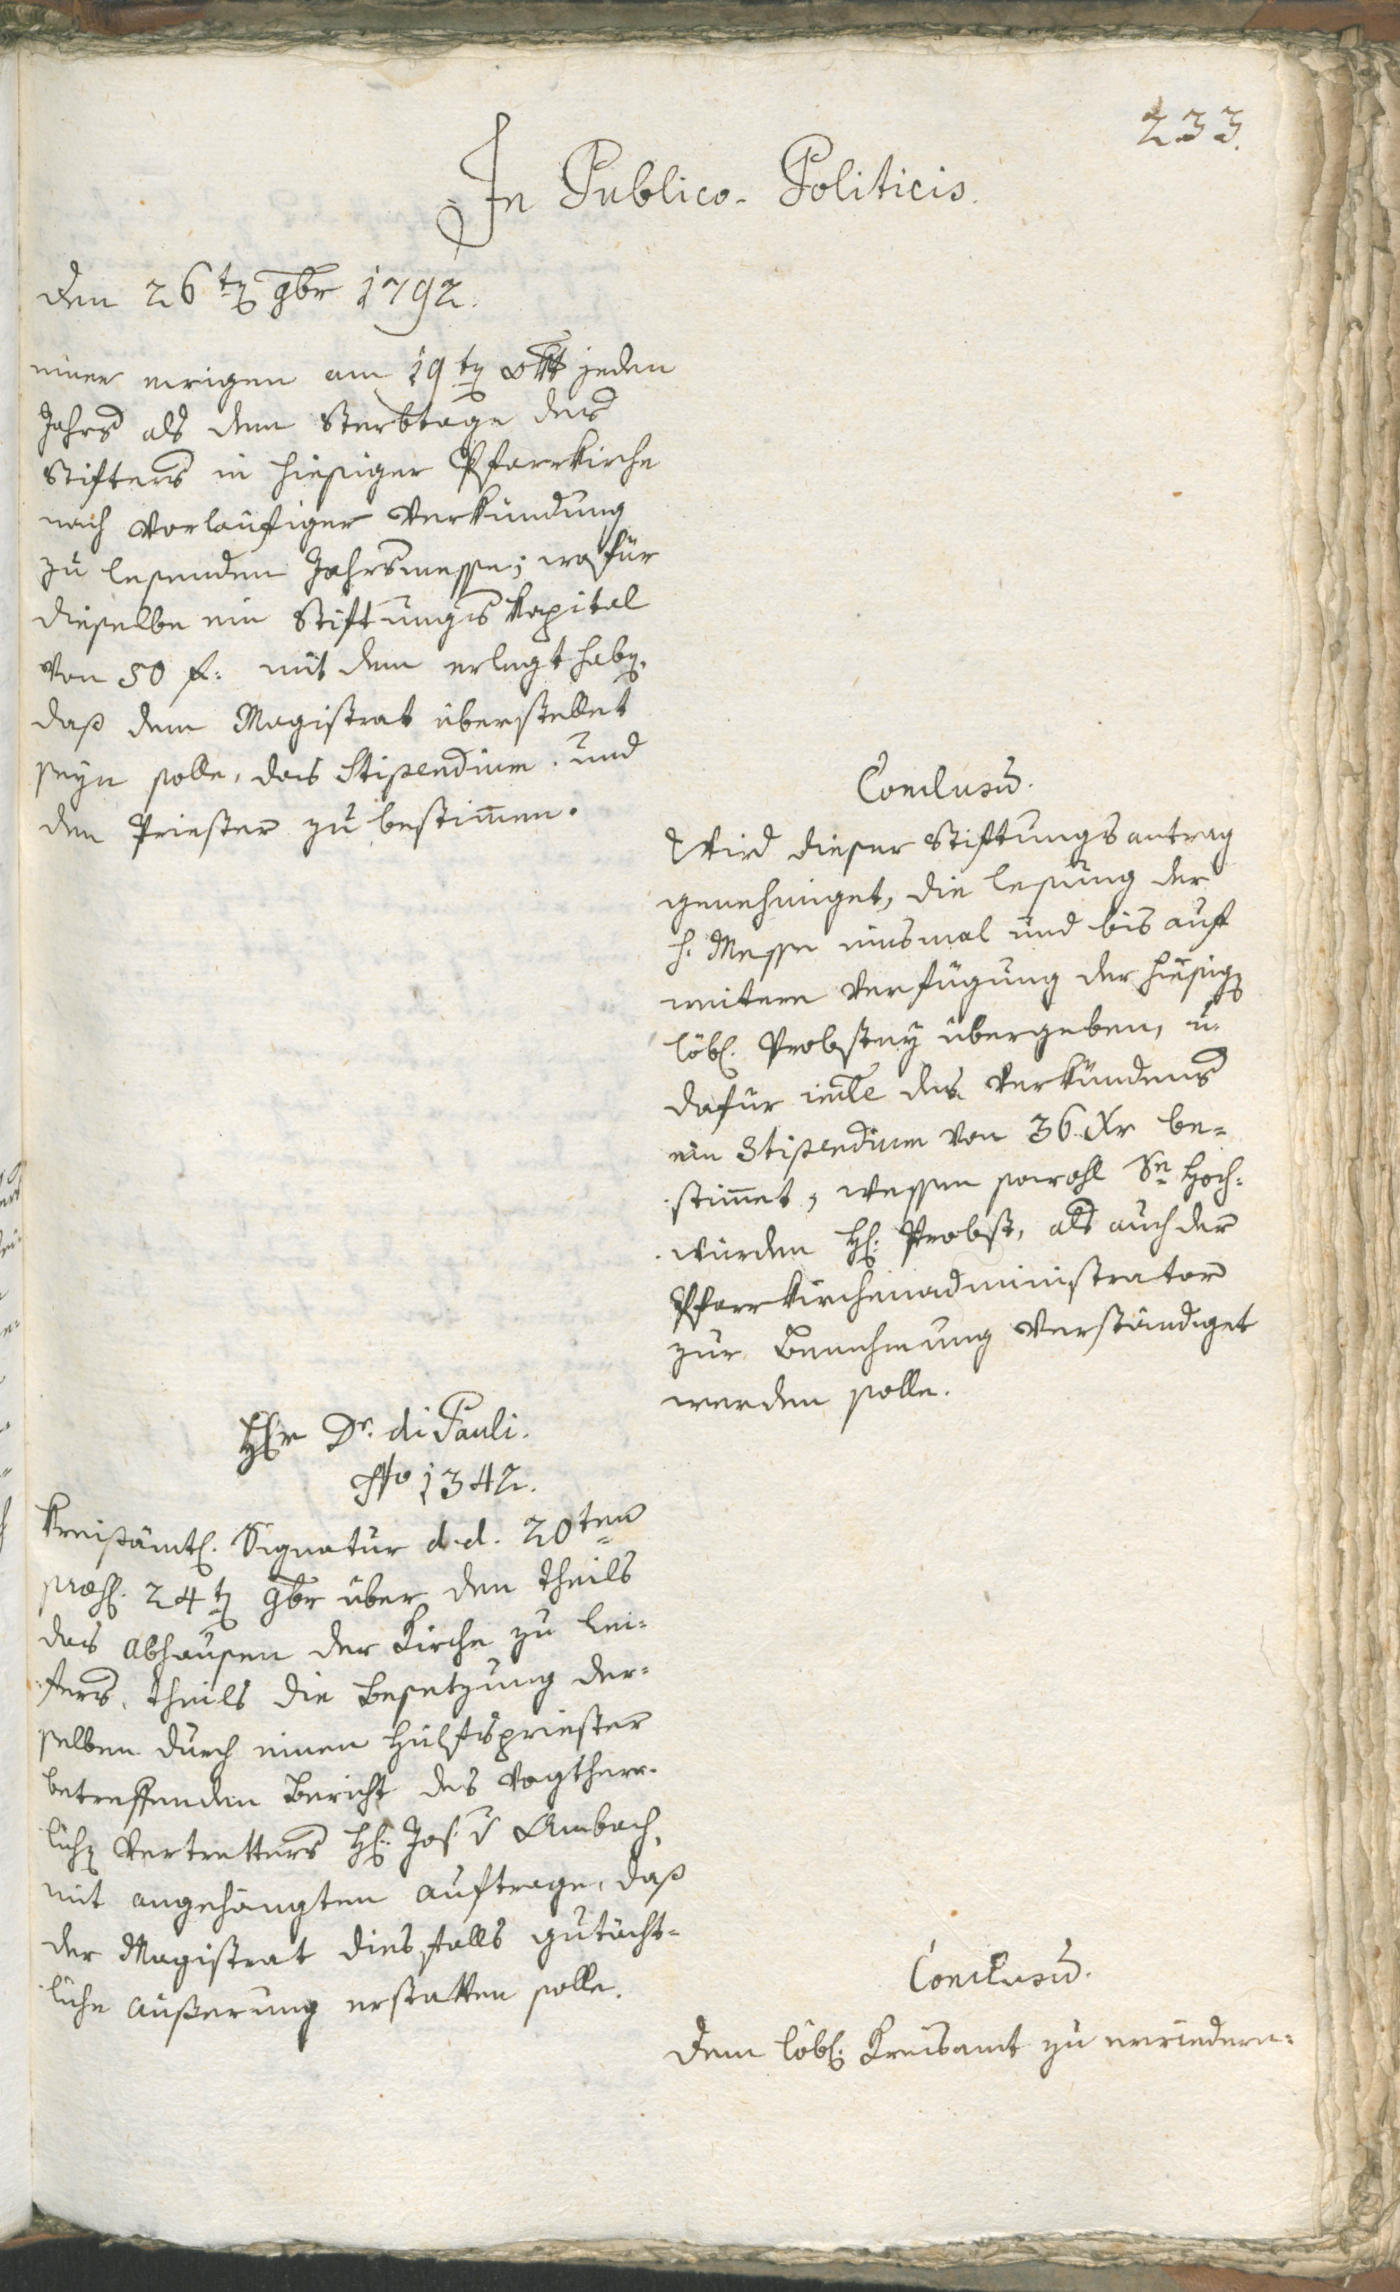 233.
In Publico-Politicis.
den 26ten 9br 1792.
einer ewigen am 19ten Okt jeden
Jahrs als dem Sterbtage des
Stifters in hiesiger Pfarrkirche
nach vorläufiger Verkündung
zu lesenden Jahrsmesse; wofür
dieselbe ein Stiftungs Kapital
von 50 f: mit dem erlegt haben,
daß dem Magistrat überstellet
seyn solle, das Stipendium und
den Priester zu bestimen.
Conclusum.
Wird dieser Stiftungsantrag
genehmiget, die Lesung der
h. Messe einsmal und bis auf
weitere Verfügung der hiesigen
löbl. Probstey übergeben, u.
dafür incle des Verkündens
ein Stipendium von 36 Xr be-
stimet, wessen sowohl Se Hoch-
würden H: Probst, als auch der
Pfarrkirchenadministrator
zur Benehmung verständiget
werden solle.
Hr Dr. di Pauli.
No 1342.
Kreisämtl. Signatur d.d. 20ten
præs. 24ten 9br über den theils
das Abhausen der Kirche zu Lei-
fers, theils die Besetzung der-
selben durch einen Hülfspriester
betreffenden Bericht des Vogtherr-
lichen Vertretters H: Jos. v Ambach,
mit angehängten Auftrage, daß
der Magistrat diesfalls gutächt-
liche Äußerung erstatten solle.
Conclusum.
Dem löbl. Kreisamt zu erwiedern: